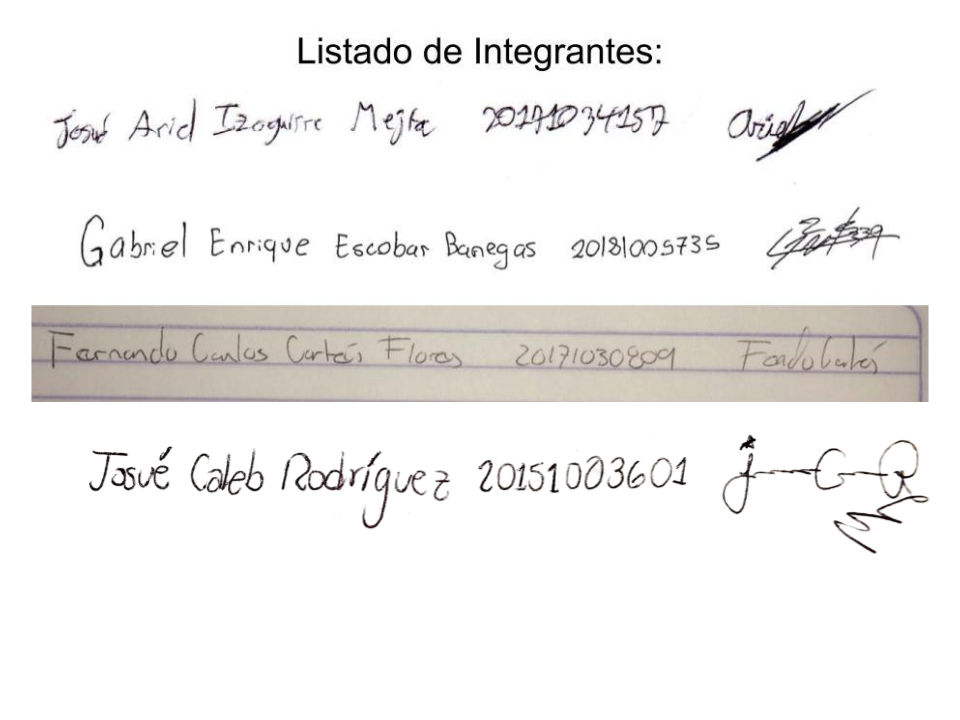 Listado de Integrantes:
Josué Ariel Izaguirre Mejía 20171034157 Ariel
Gabriel Enrique Escobar Banegas 20181005735
Fernando Carlos Cortés Flores 20171030809
Josué Caleb Rodríguez 20151003601